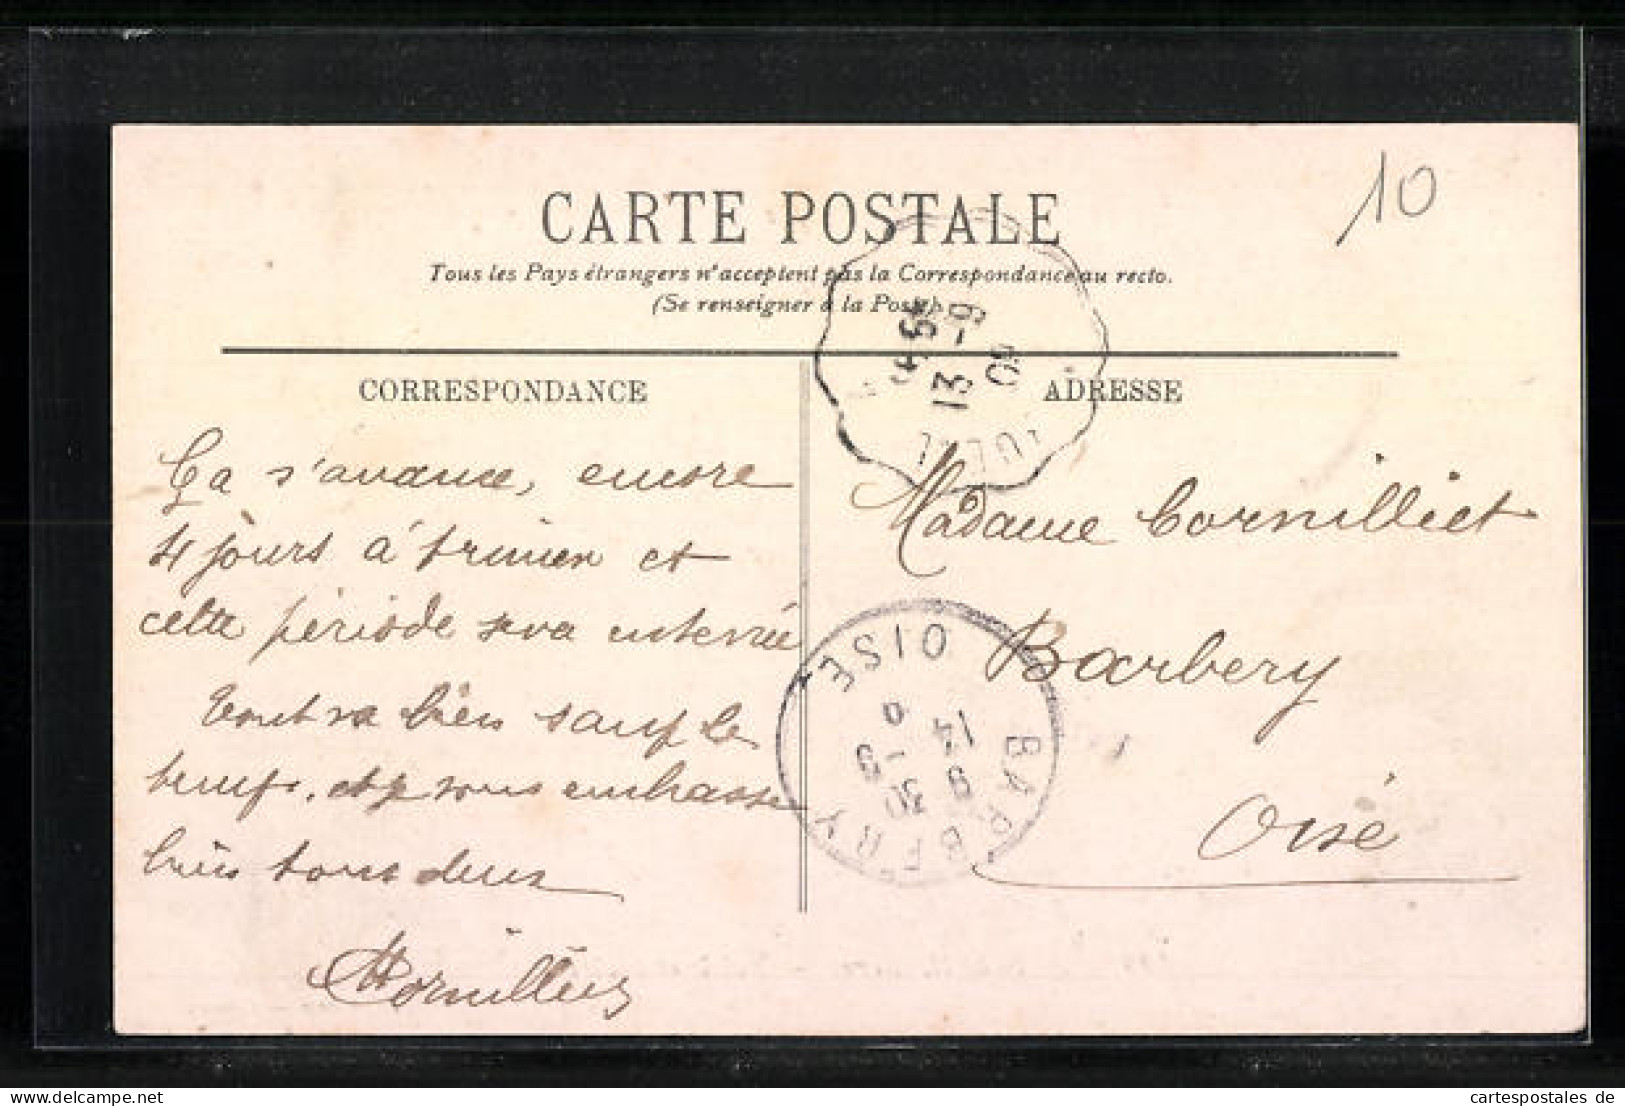 10
CARTE POSTALE
Tous les Pays étrangers n'acceptent pas la Correspondance au recto.
(Se renseigner à la Poste).
CORRESPONDANCE
Ça s'avance, encore
4 jours à trimer et
cette période sera enterrée
Tout va bien sauf le
temps. et je vous embrasse
bien tous deux
ADRESSE
13 -9
09
Madame Cornilliet
Barbery
Oise
BARBERY
OISE
9 30
14 -9
cartespostales de
www.cartespostales.de